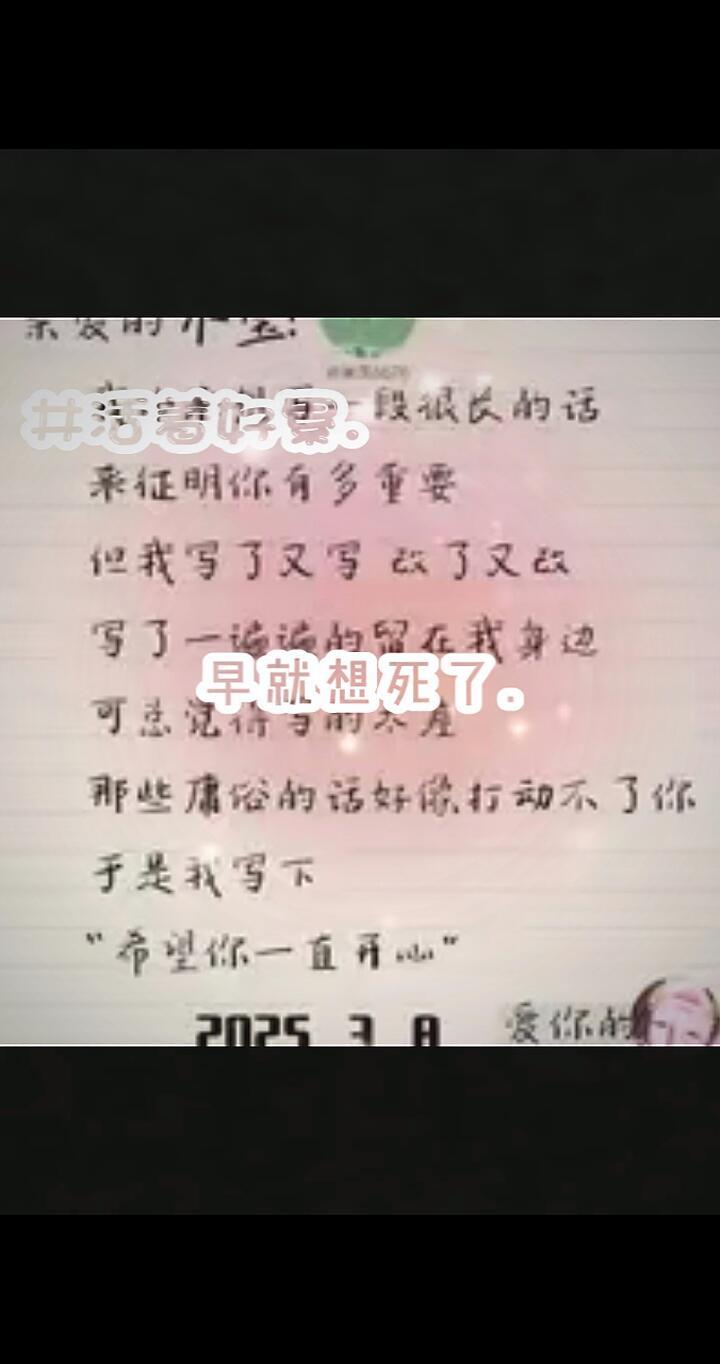 亲爱的
#活着好累.
一段很长的话
来征明你有多重要
但我写了又写 改了又改
写了一遍遍的留在我身边
早就想死了。
可总觉得写的太差
那些庸俗的话好像打动不了你
于是我写下
“希望你一直开心”
2025 3 8
爱你的